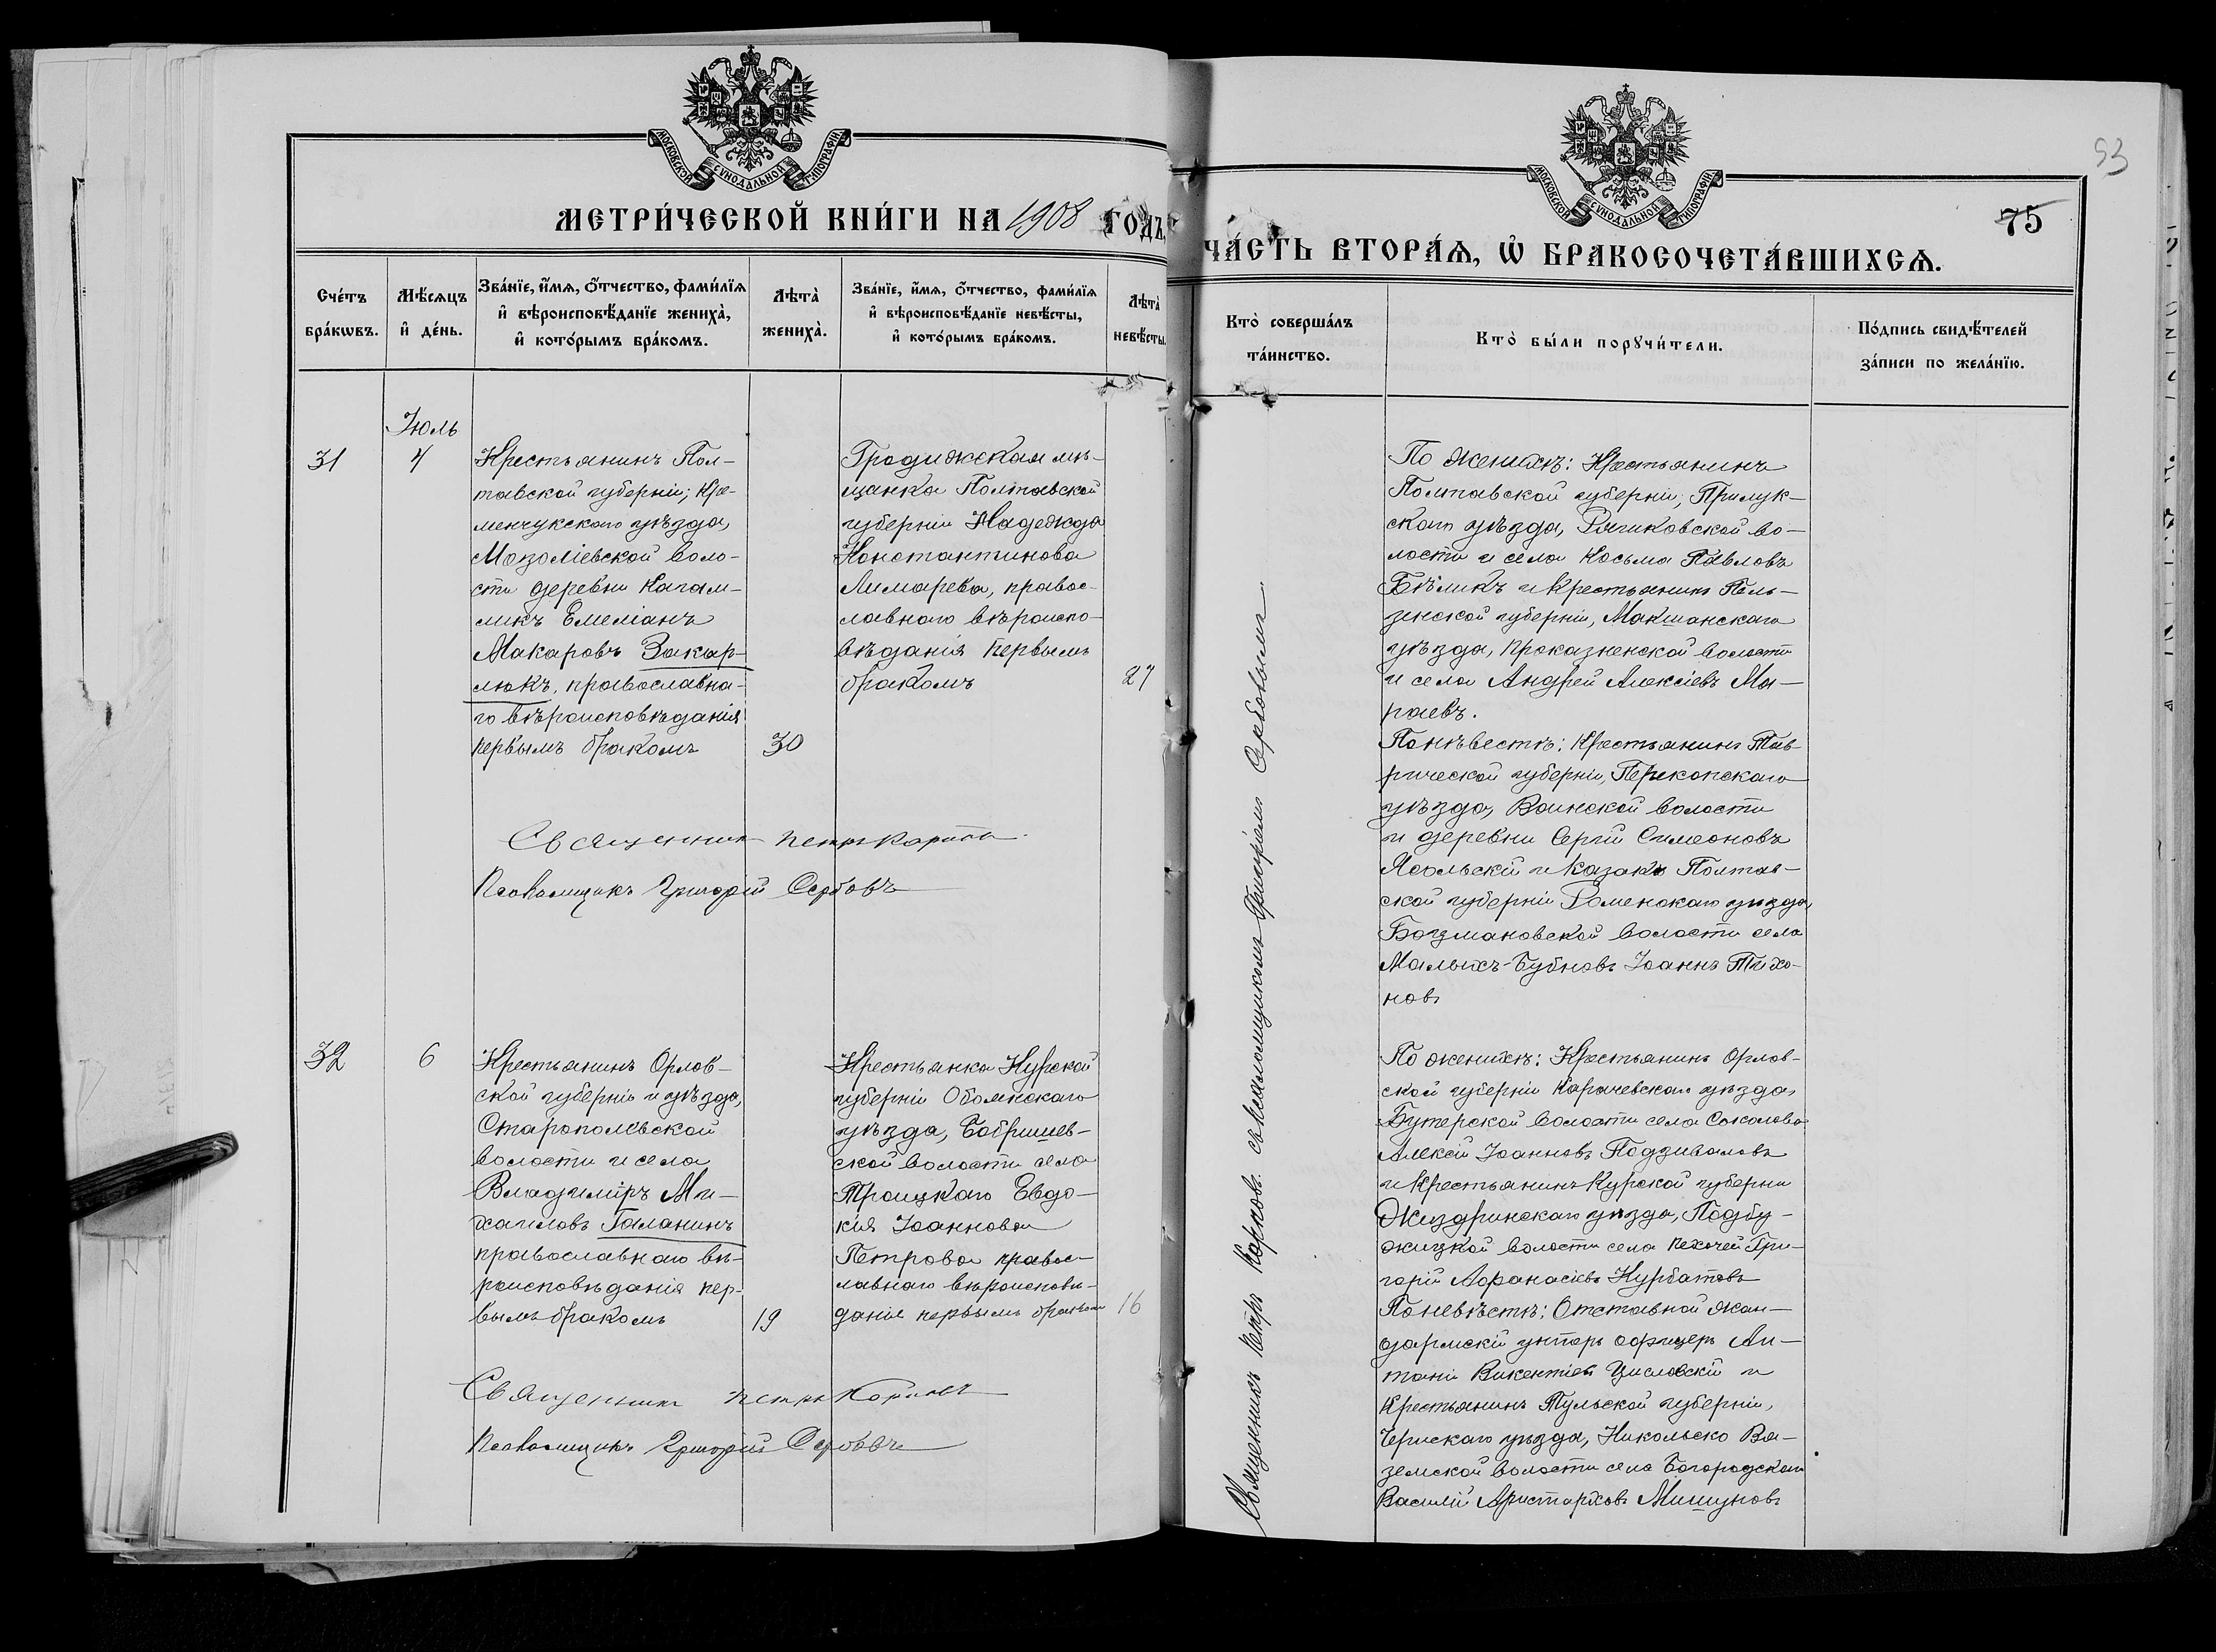 МОСКОВСКОЙ СУНОДАЛЬНОЙ ТИПОГРАФІИ
МЕТРИ́ЧЕСКОЙ КНИ́ГИ НА 1908 ГОДЪ,
Сче́тъ бра́кѡвъ.
Мѣ́сяцъ и҆ де́нь.
Зва́нїе, и҆́мя, ѻ҆́тчество, фами́лїя
и҆ вѣроисповѣ́данїе жениха̀,
и҆ кото́рымъ бра́комъ.
Лѣта̀ жениха̀.
Зва́нїе, и҆́мя, ѻ҆́тчество, фами́лїя
и҆ вѣроисповѣ́данїе невѣ́сты,
и҆ кото́рымъ бра́комъ.
Лѣта̀ невѣ́сты.
Іюль
31
4
Крестьянинъ Пол-
тавской губерніи, Кре-
менчукскаго уѣзда,
Мозоліевской воло-
сти деревни Кагам-
ликъ Емеліанъ
Макаровъ Закар-
люкъ, православна-
го вѣроисповѣданія
первымъ бракомъ
30
Градижская мѣ-
щанка Полтавской
губерніи Надежда
Константинова
Лимарева, правос-
лавнаго вѣроиспо-
вѣданія первымъ
бракомъ
27
Священник Петръ Карпов
Псаломщикъ Григорій Сербовъ
32
6
Крестьянинъ Орлов-
ской губерніи и уѣзда,
Старопольской
волости и села
Владиміръ Ми-
хаиловъ Галанинъ
православнаго вѣ-
роисповѣданія пер-
вымъ бракомъ
19
Крестьянка Курской
губерніи Обоянскаго
уѣзда, Бобришев-
ской волости села
Троицкаго Евдо-
кія Іоаннова
Петрова правос-
лавнаго вѣроисповѣ-
данія первымъ бракомъ
16
Священник Петръ Карповъ
Псаломщикъ Григорій Сербовъ
53
75
МОСКОВСКОЙ СУНОДАЛЬНОЙ ТИПОГРАФІИ
ЧА́СТЬ ВТОРА́Ѧ, Ѽ БРАКОСОЧЕТА́ВШИХСѦ.
Кто̀ соверша́лъ
та́инство.
Кто̀ бы́ли порꙋчи́тели.
По́дпись свидѣ́телей
за́писи по жела́нїю.
Священникъ Петръ Карповъ съ псаломщикомъ Григоріемъ Сербовымъ
По женихѣ: Крестьянинъ
Полтавской губерніи, Прилук-
скаго уѣзда, Рячиковской во-
лости и села Косьма Павловъ
Бѣликъ и крестьянинъ Пен-
зенской губерніи, Мокшанскаго
уѣзда, Проказненской волости
и села Андрей Алексіевъ Мы-
раевъ.
По невѣстѣ: Крестьянинъ Тав-
рической губерніи, Перекопскаго
уѣзда, Воинской волости
и деревни Сергій Симеоновъ
Ясольскій и казакъ Полтав-
ской губерніи Роменскаго уѣзда,
Богдановской волости села
Малыхъ-Бубновъ Іоаннъ Тихо-
новъ
По женихѣ: Крестьянинъ Орлов-
ской губерніи Карачевскаго уѣзда,
Бутерской волости села Соколова
Алексій Іоанновъ Поддиваловъ
и Крестьянинъ Курской губерніи
Жиздринскаго уѣзда, Подбу-
жицкой волости села Пехочей Гри-
горій Афанасіевъ Курбатовъ
По невѣстѣ: Отставной жан-
дармскій унтеръ офицеръ Ан-
тоній Викентіевъ Цисловскій и
Крестьянинъ Тульской губерніи,
Чернскаго уѣзда, Никольско Вя-
земской волости села Богородскаго
Василій Аристарховъ Мишуновъ